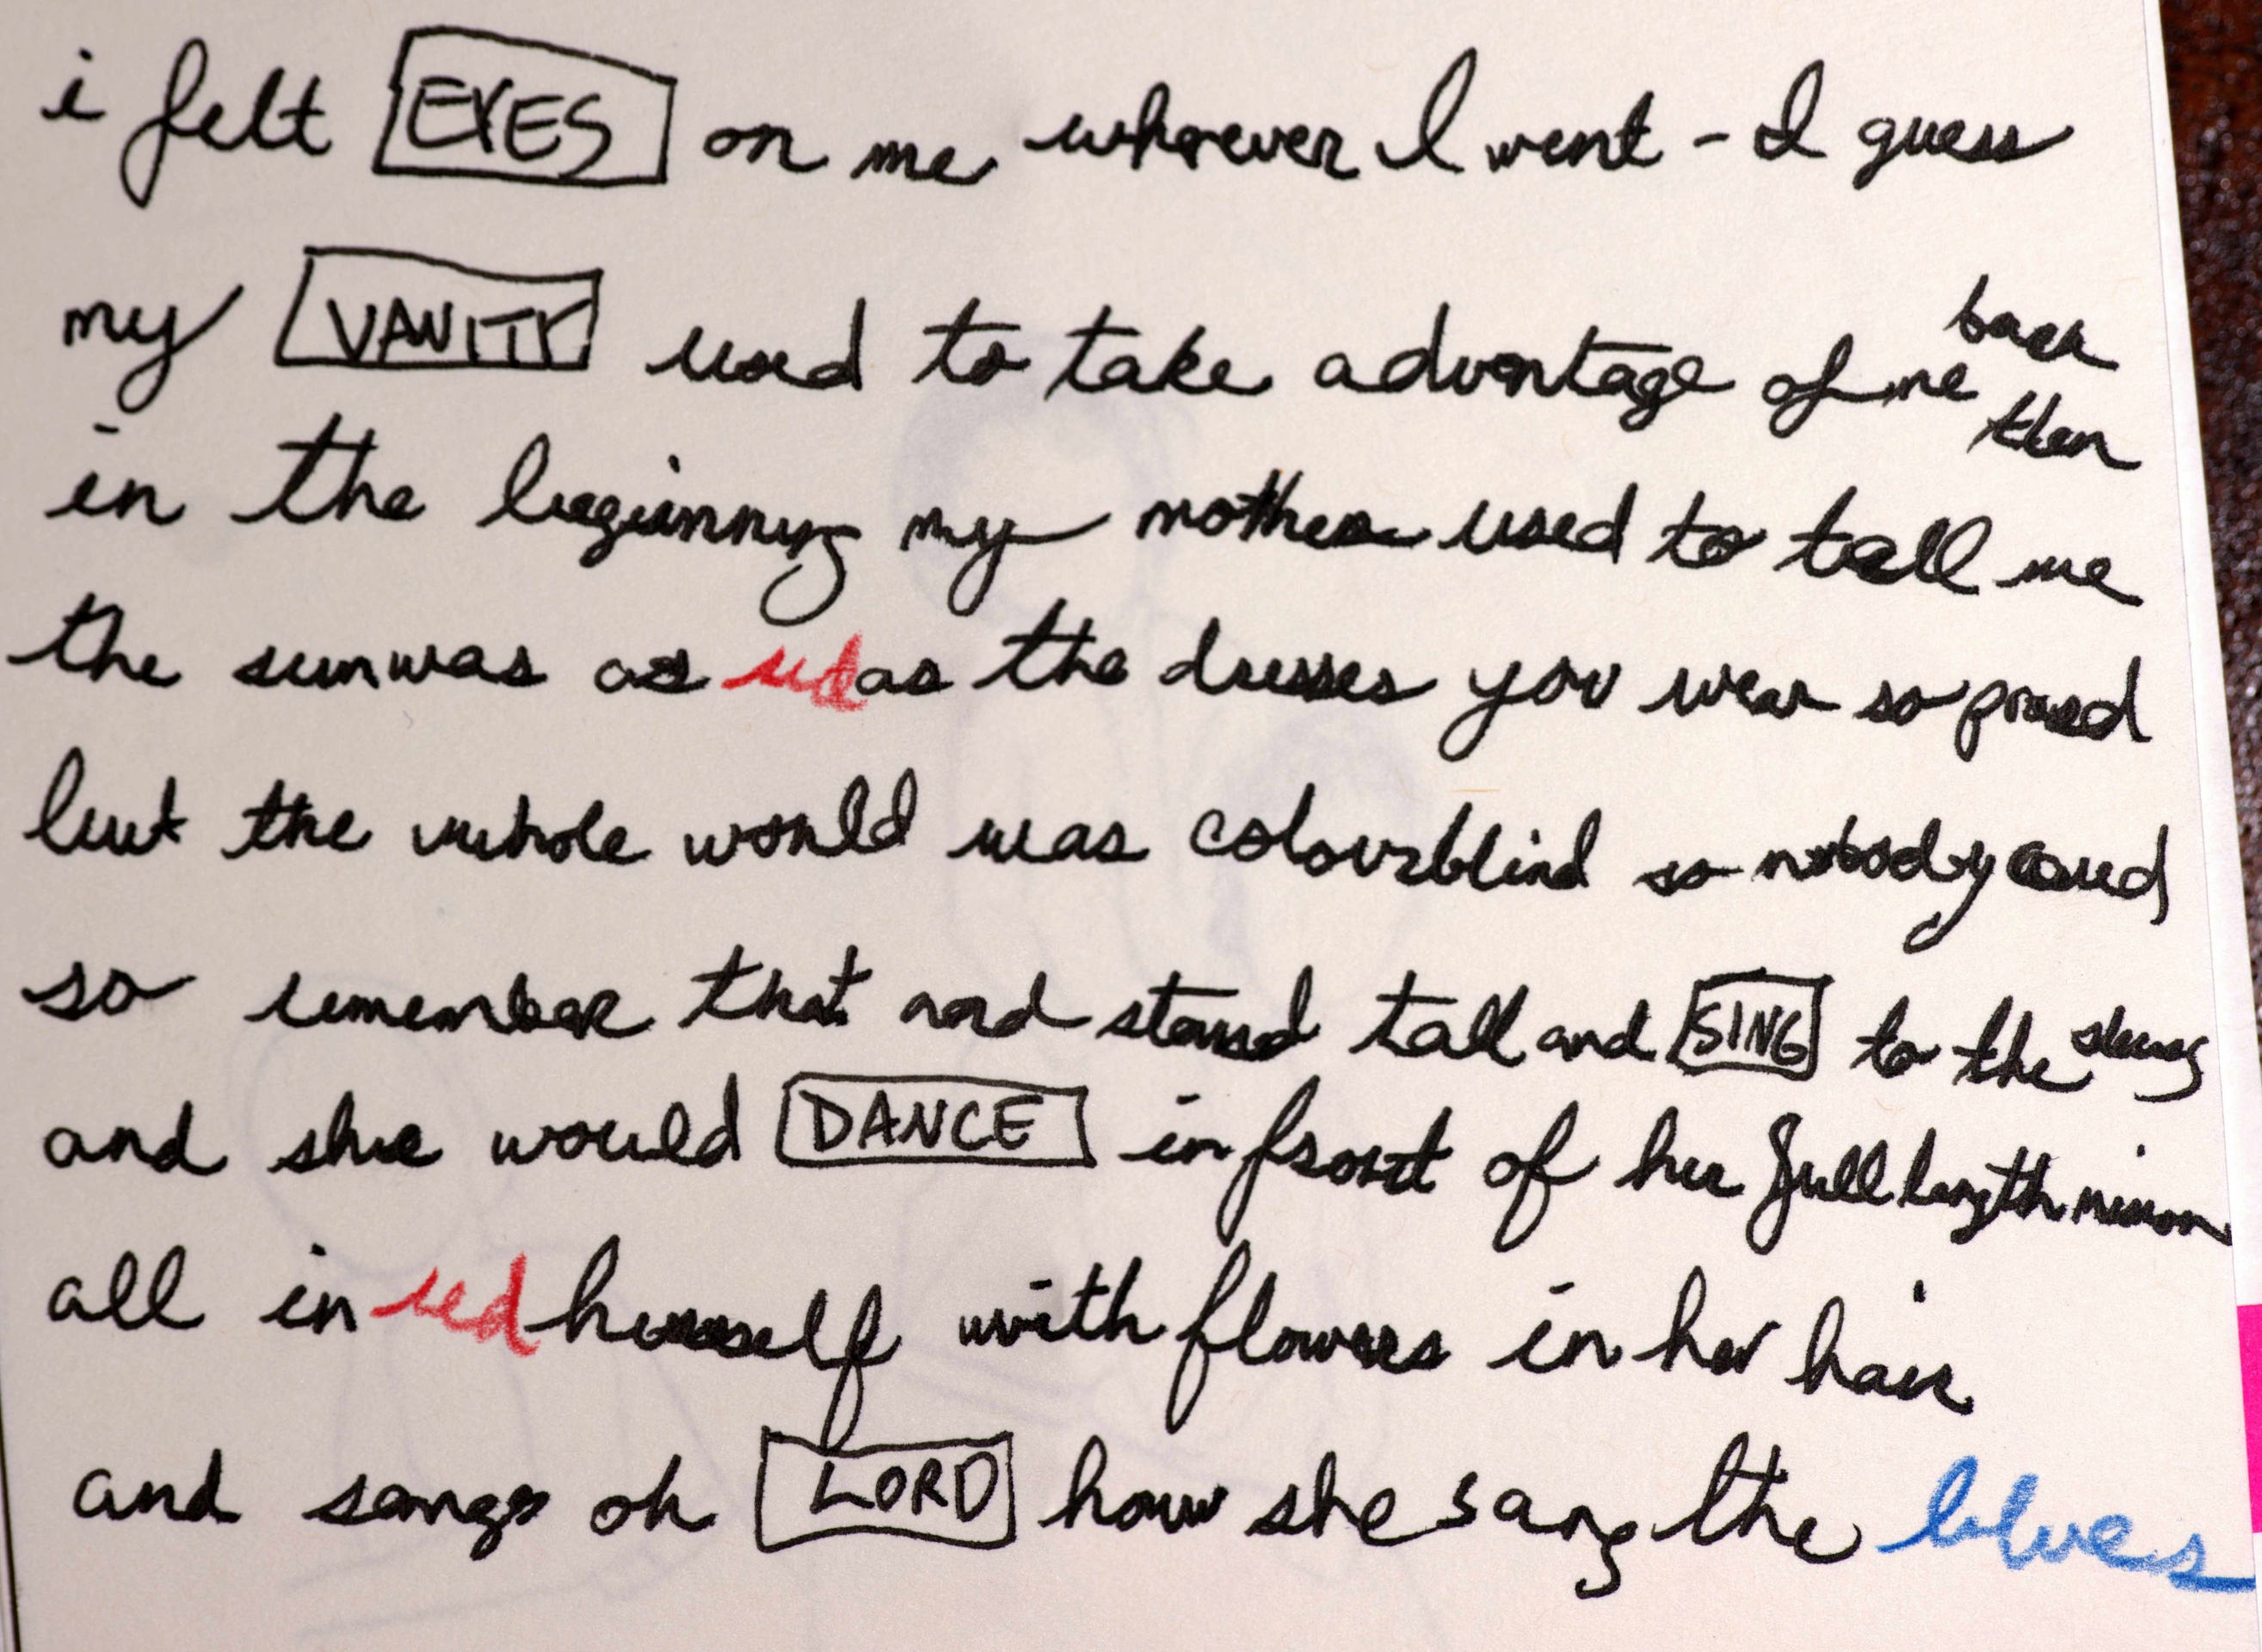 i felt EYES on me wherever I went - I guess
my VANITY used to take advantage of me back then
in the beginning my mother used to tell me
the sun was as red as the dresses you wear so proud
but the whole world was colourblind so nobody cared
so remember that and stand tall and SING to the
and she would DANCE in front of her full length mirror
all in red herself with flowers in her hair
and sang oh LORD how she sang the blues